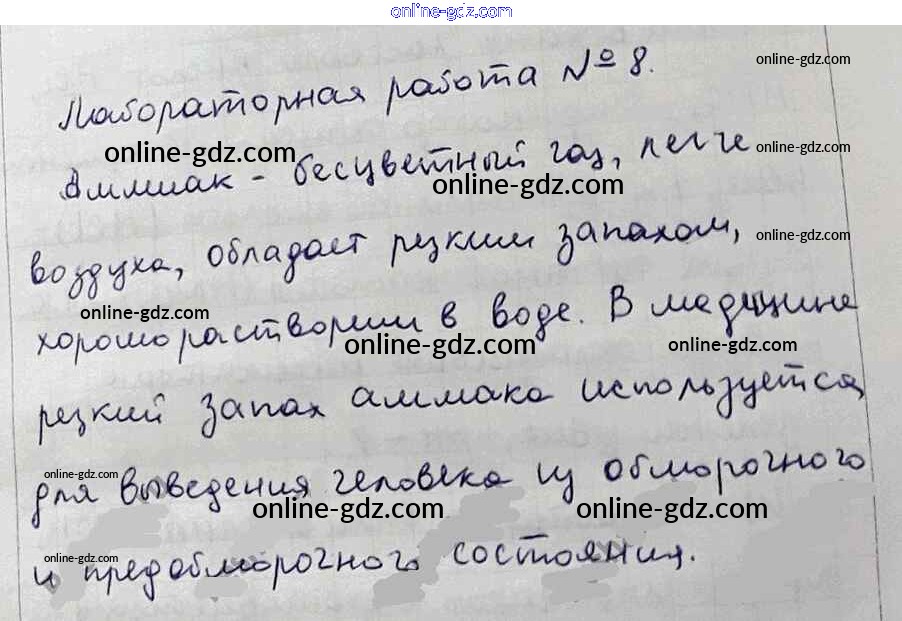 online-gdz.com
Лабораторная работа №8.
online-gdz.com
online-gdz.com
Аммиак - бесцветный газ, легче
online-gdz.com
online-gdz.com
воздуха, обладает резким запахом,
online-gdz.com
online-gdz.com
хорошо растворим в воде. В медицине
online-gdz.com
online-gdz.com
резкий запах аммиака используется
для выведения человека из обморочного
online-gdz.com
online-gdz.com
online-gdz.com
и предобморочного состояния.
online-gdz.com